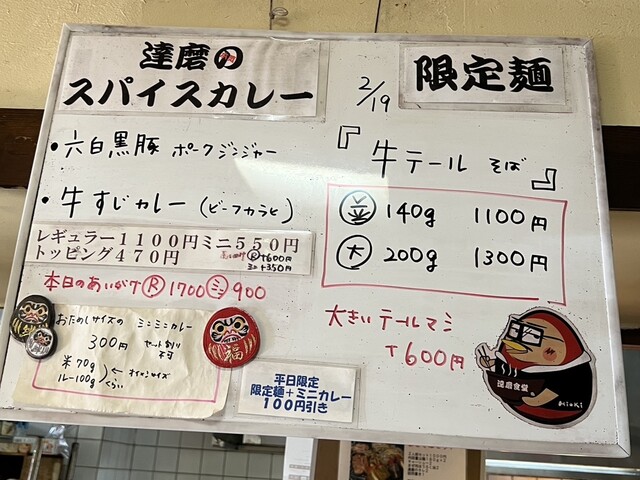 達磨の
スパイスカレー
・六白黒豚 ポークジンジャー
・牛すじカレー (ビーフカラヒ)
レギュラー1100円ミニ550円
トッピング470円
R+600円
ミニ+350円
本日のあいがけ Ⓡ1700 ミニ900
おためしサイズの ミニミニカレー
300円
セット割り
不可
米70g
ルー100g
くらい
福
平日限定
限定麺+ミニカレー
100円引き
限定麺
2/19
『牛テール そば』
並 140g 1100円
大 200g 1300円
大きいテールマシ
+600円
達磨食堂
HioKi